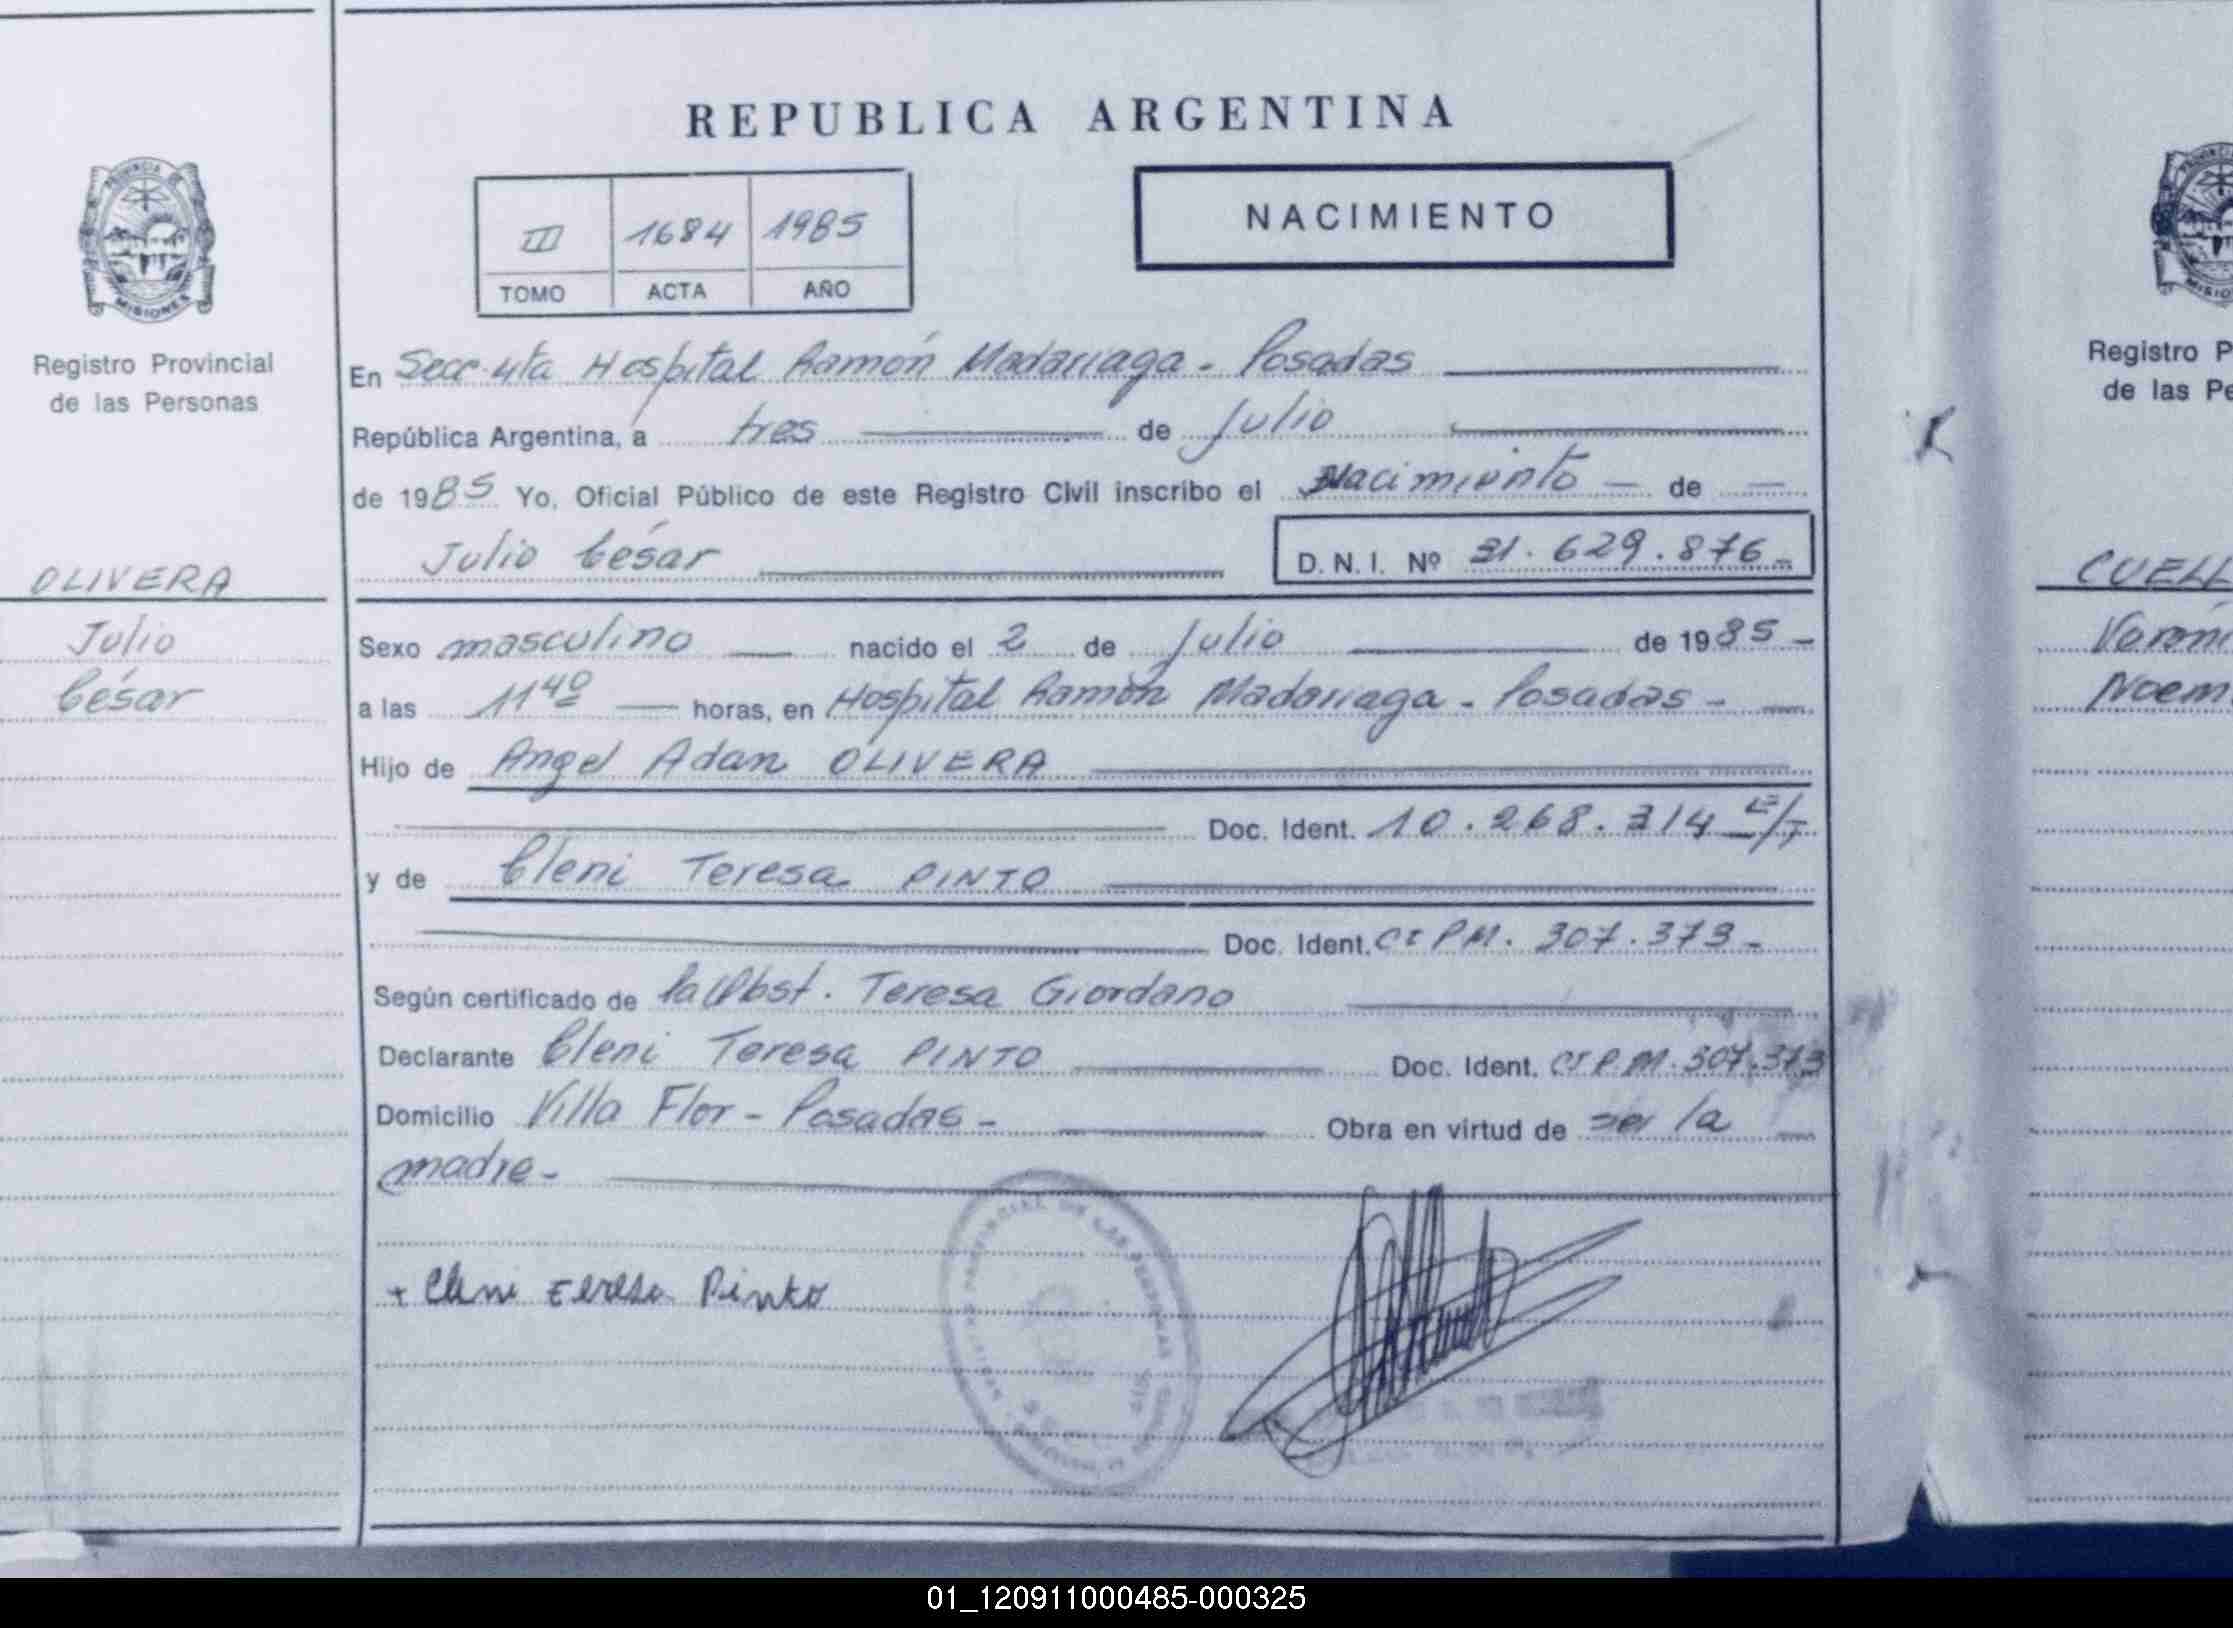 REPUBLICA ARGENTINA
PROVINCIA DE
MISIONES
Registro Provincial
de las Personas
OLIVERA
Julio
César
III 1684 1985
TOMO ACTA AÑO
NACIMIENTO
En Secc. 4ta Hospital Ramón Madariaga - Posadas
República Argentina, a tres de Julio
de 1985 Yo, Oficial Público de este Registro Civil inscribo el Nacimiento — de —
Julio César
D. N. I. Nº 31.629.876-
Sexo masculino nacido el 2 de Julio de 1985 -
a las 11 40 horas, en Hospital Ramón Madariaga - Posadas -
Hijo de Angel Adan OLIVERA
Doc. Ident. 10.268.314
y de Cleni Teresa PINTO
Doc. Ident. CI PM. 307.373 -
Según certificado de la Obst. Teresa Giordano
Declarante Cleni Teresa PINTO Doc. Ident. CI P.M. 307.373
Domicilio Villa Flor - Posadas - Obra en virtud de ser la
madre -
+ Cleni Teresa Pinto
Registro P
de las Pe
CUELL
Veróni
Noem
01_120911000485-000325